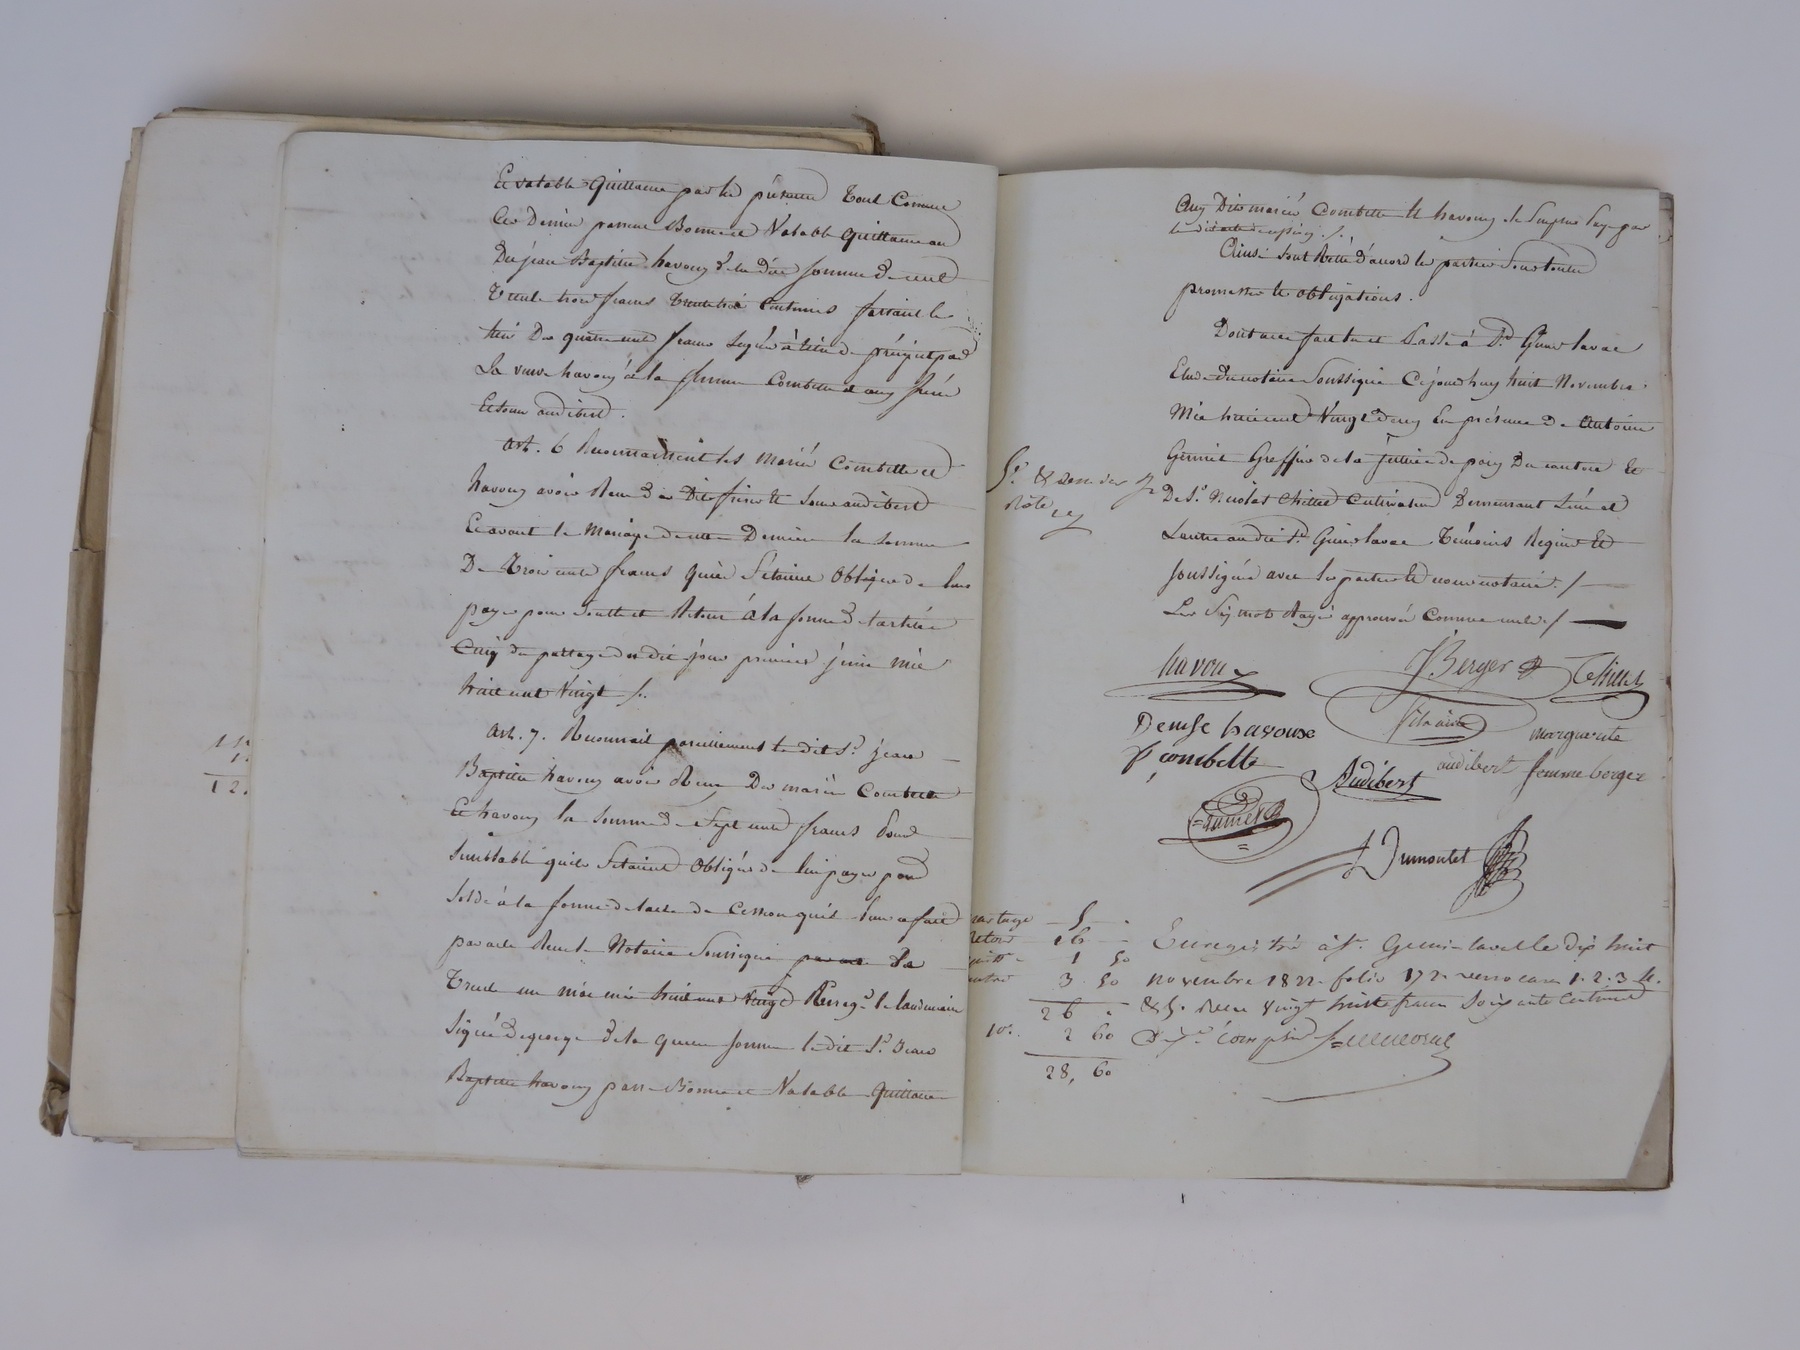 Et valable quittance par les présentes tout Comme
Ces Derniers passent Bonne et Valable quittance au
Dit jean Baptiste havouy de la dite somme de cent
trente trois francs trente trois Centimes faisant le
tiers Des quatre cents francs légués à titre de préciput par
La veuve havouy à la femme Combette et aux frère
Et soeur audibert.
art. 6 Reconnaissent les mariés Combette et
havouy avoir Reçu des Dits frère et soeur audibert
Et avant le Mariage de cette Dernière la somme
De trois cents francs qu'ils s'étaient Obligés de leur
payer pour soulte et Retour à la forme de l'article
Cinq du partage du dit jour premier juin mil
huit cent Vingt /.
art. 7. Reconnait pareillement le dit Sr. jean
Baptiste havouy avoir Reçu Des mariés Combette
Et havouy la somme de Sept cents francs pour
semblable qu'ils s'étaient Obligés de lui payer pour
solde à la forme de l'acte de Cession qu'il leur a fait
par acte Reçu le Notaire Soussigné par le
trente un mai mil huit cent Vingt Enregé. le lendemain
Signé Degeorge de la quelle somme le dit Sr. Jean
Baptiste havouy passe Bonne et Valable quittance
Aux Dits mariés Combette et havouy
Ainsi sont Resté d'accord les parties sous toutes
promesses et obligations.
Dont acte fait lu et Passé à St. Genis laval
Etude du notaire Soussigné Cejourd'huy huit Novembre
Mil huit cent Vingt deux En présence de Antoine
Greffier de la justice de paix Du canton Et
De Sr. Nicolas thillet Cultivateur Demeurant L'un et
L'autre au dit St. Genis laval Témoins Requis Et
Soussignés avec les parties Et nous notaire. /.
Les Six mots Rayés approuvés Comme nuls. /.
havouy
J Berger
thillet
Denise havouse
marguerite
P combette
audibert femme berger
Audibert
Dumontet
partage 5 .
retour 16 .
1 50
3 50
26 .
10e. 2 60
28, 60
Enregistré à St. Genis-laval le dix huit
novembre 1822. folio 172. verso cases 1. 2. 3. 4.
&5. Reçu vingt huit francs soixante centimes
Dixe. compris